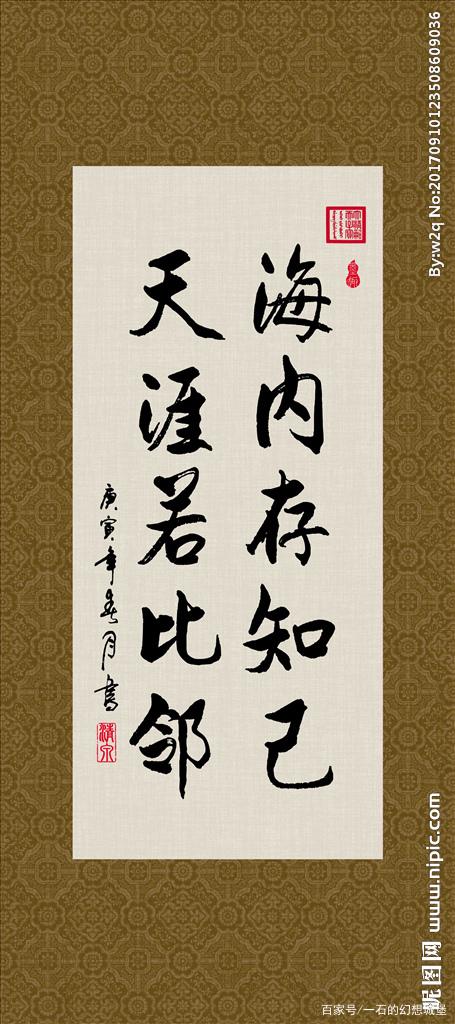 海内存知己
天涯若比邻
庚寅年春月书
清泉
By:w2q No:20170910123508609036
昵图网 www.nipic.com
百家号/一石的幻想城堡